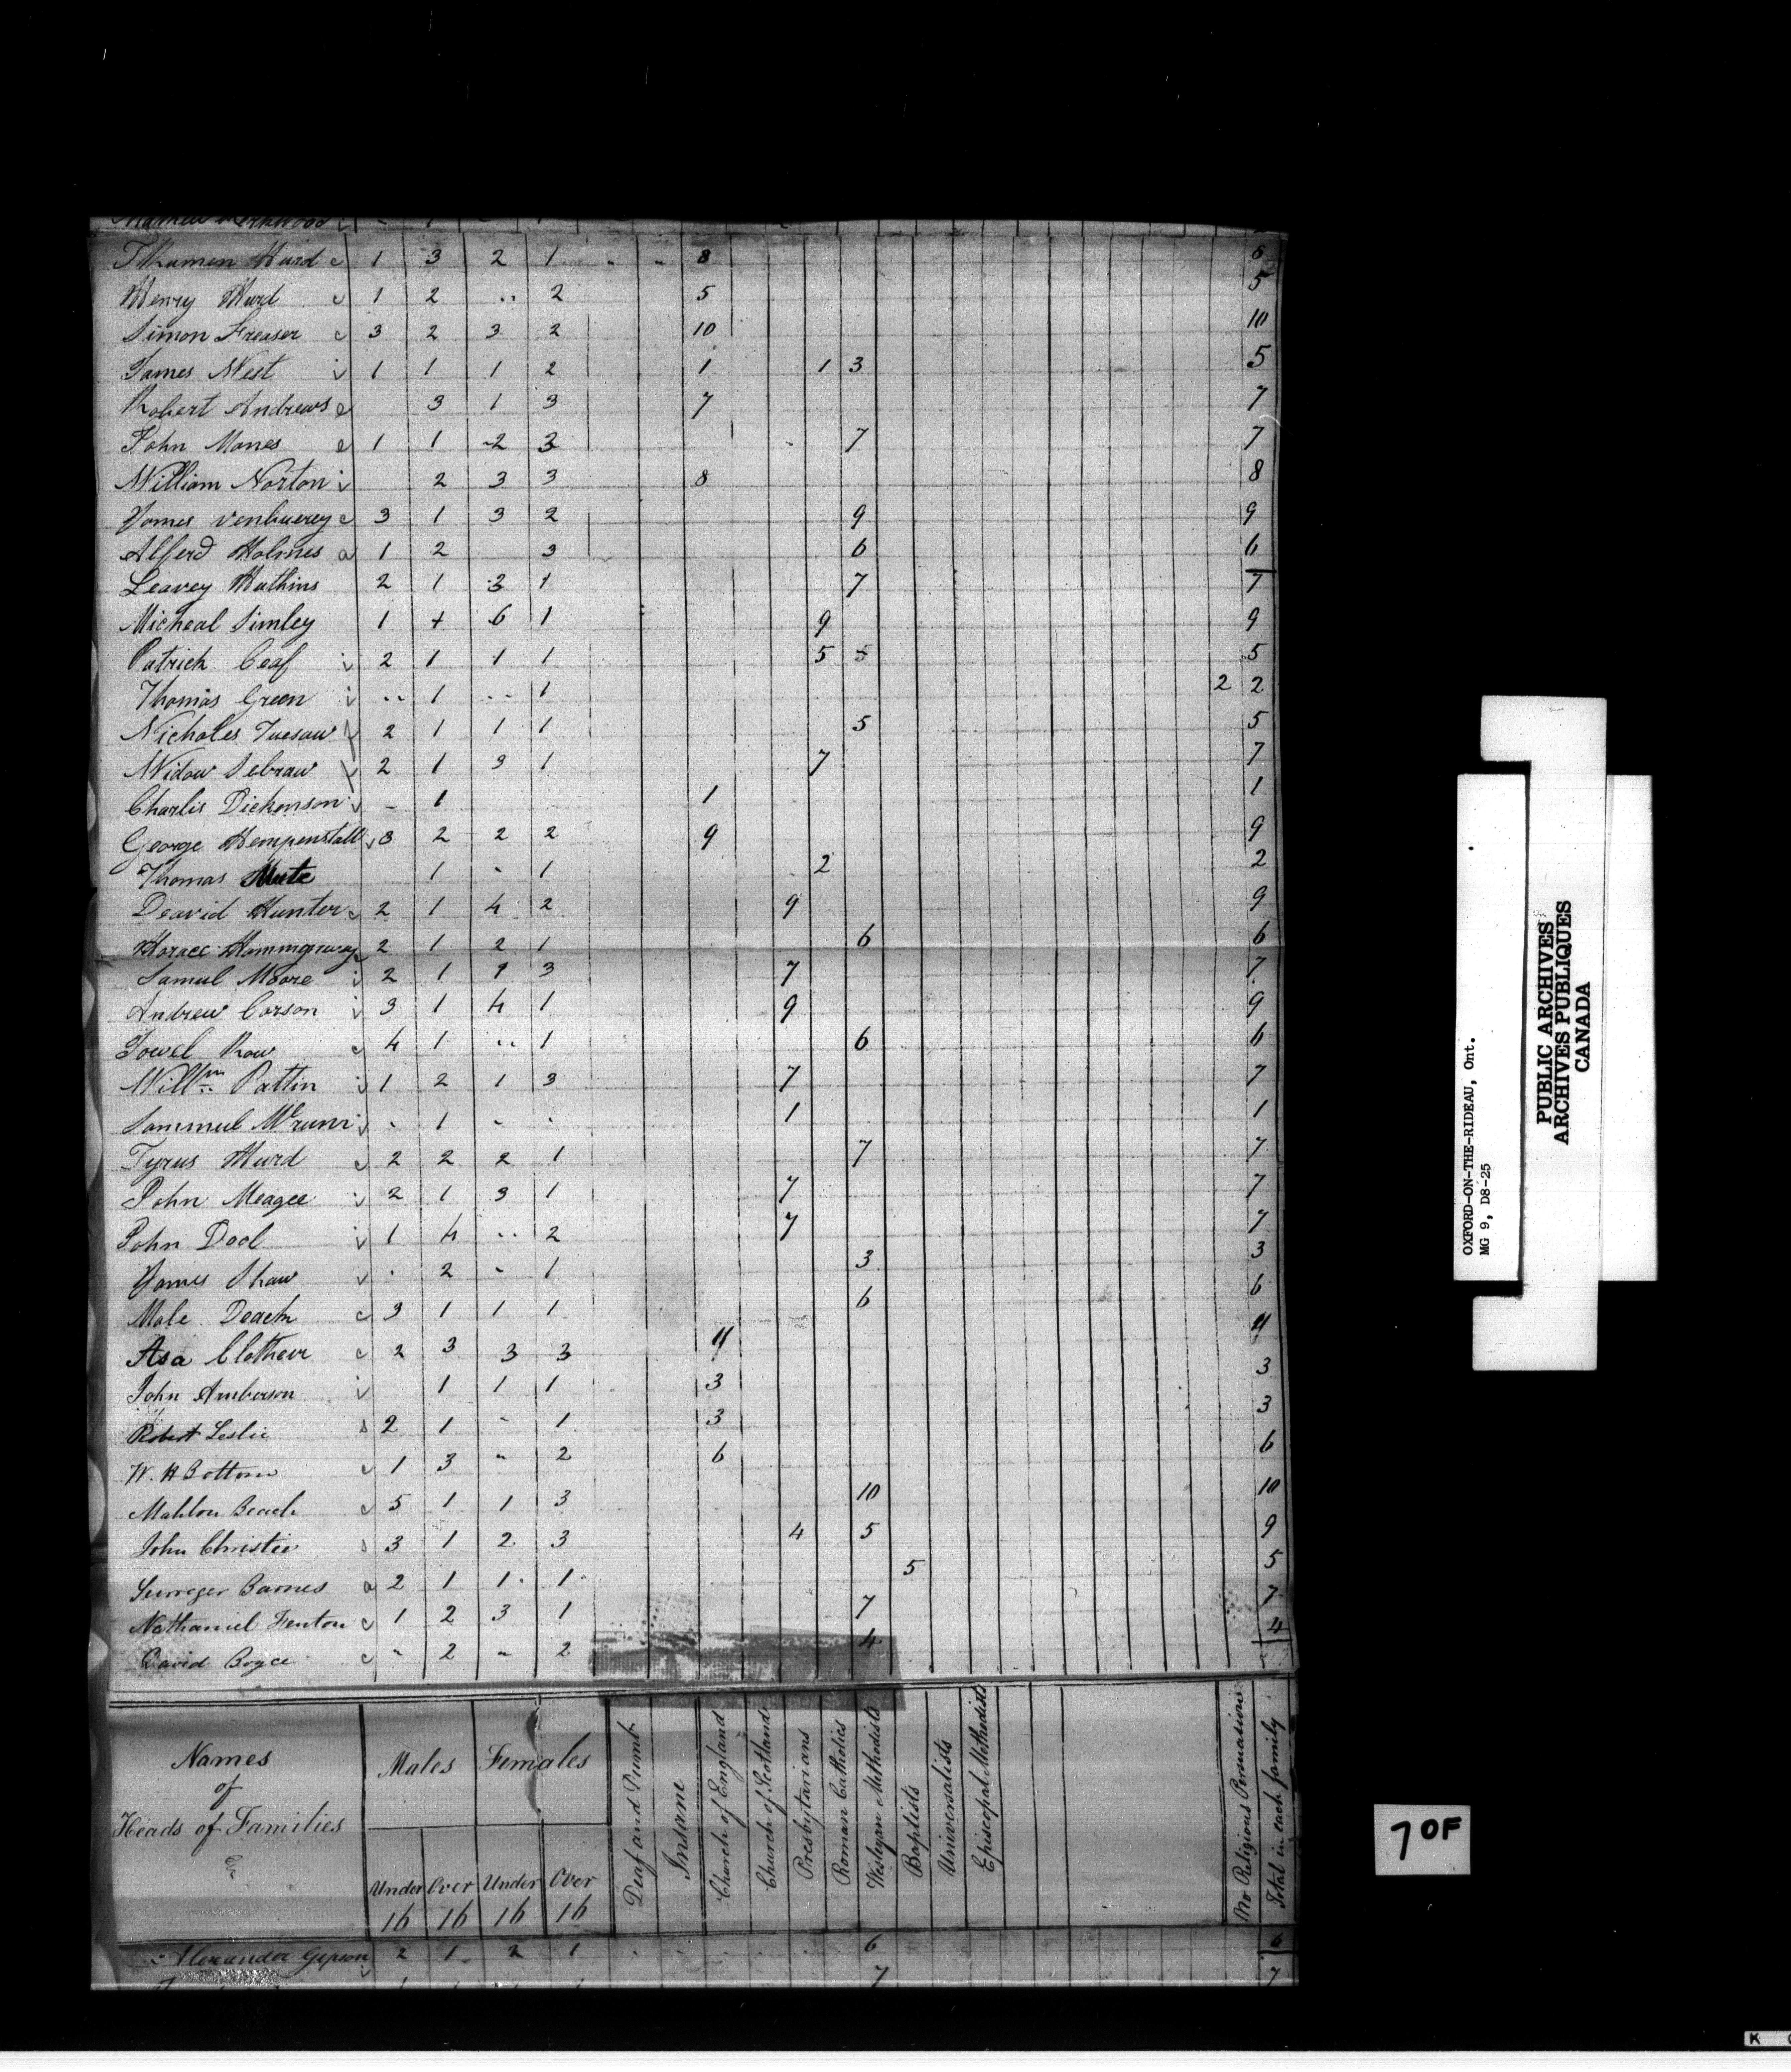 Thurman Hurd c 1 3 2 1 " " 8 8
Henry Hurd c 1 2 .. 2 5 5
Simon Freaser c 3 2 3 2 10 10
James West i 1 1 1 2 1 1 3 5
Robert Andrews e 3 1 3 7 7
John Mones e 1 1 2 3 7 7
William Norton i 2 3 3 8 8
James Venbuerey c 3 1 3 2 9 9
Alferd Holmes a 1 2 3 6 6
Leavey Wathins 2 1 3 1 7 7
Micheal Simley 1 + 6 1 9 9
Patrick Ceaf i 2 1 1 1 5 5 5
Thomas Green i .. 1 .. 1 2 2
Nicholes 2 1 1 1 5 5
Widow Sebraw 2 1 3 1 7 7
Charlis Dickenson i - 1 1 1
George Hempenstall i 3 2 2 2 9 9
Thomas 1 - 1 2 2
Deavid Hunter c 2 1 4 2 9 9
Horace Hammingeway c 2 1 2 1 6 6
Samul Moore i 2 1 1 3 7 7
Andrew Corson i 3 1 4 1 9 9
Jowel Row c 4 1 .. 1 6 6
Willm Pattin i 1 2 1 3 7 7
Sammuel i - 1 - - 1 1
Tyrus Hurd c 2 2 2 1 7 7
John Meagee i 2 1 3 1 7 7
John Dool i 1 4 .. 2 7 7
James Shaw i - 2 - 1 3 3
Male Deach c 3 1 1 1 6 6
Asa Clothier c 2 3 3 3 11 11
John Amberson i 1 1 1 3 3
Robert Leslie s 2 1 - 1 3 3
W. H Bottom c 1 3 " 2 6 6
Mahlon Beach c 5 1 1 3 10 10
John Christie s 3 1 2 3 4 5 9
Barnes a 2 1 1 1 5 5
Nathaniel Fenton c 1 2 3 1 7 7
David Boyce c " 2 " 2 4 4
Names
of
Heads of Families
Males Females
Under 16 Over 16 Under 16 Over 16
Deaf and Dumb
Insane
Church of England
Church of Scotland
Presbytarians
Roman Catholics
Weslyan Methodists
Baptists
Universalists
Episcopal Methodists
No Religious Persuasion
Total in each family
Alexander Gipson 2 1 2 1 6 6
7 7
OXFORD-ON-THE-RIDEAU, Ont.
MG 9, D8-25
PUBLIC ARCHIVES
ARCHIVES PUBLIQUES
CANADA
7 OF
K